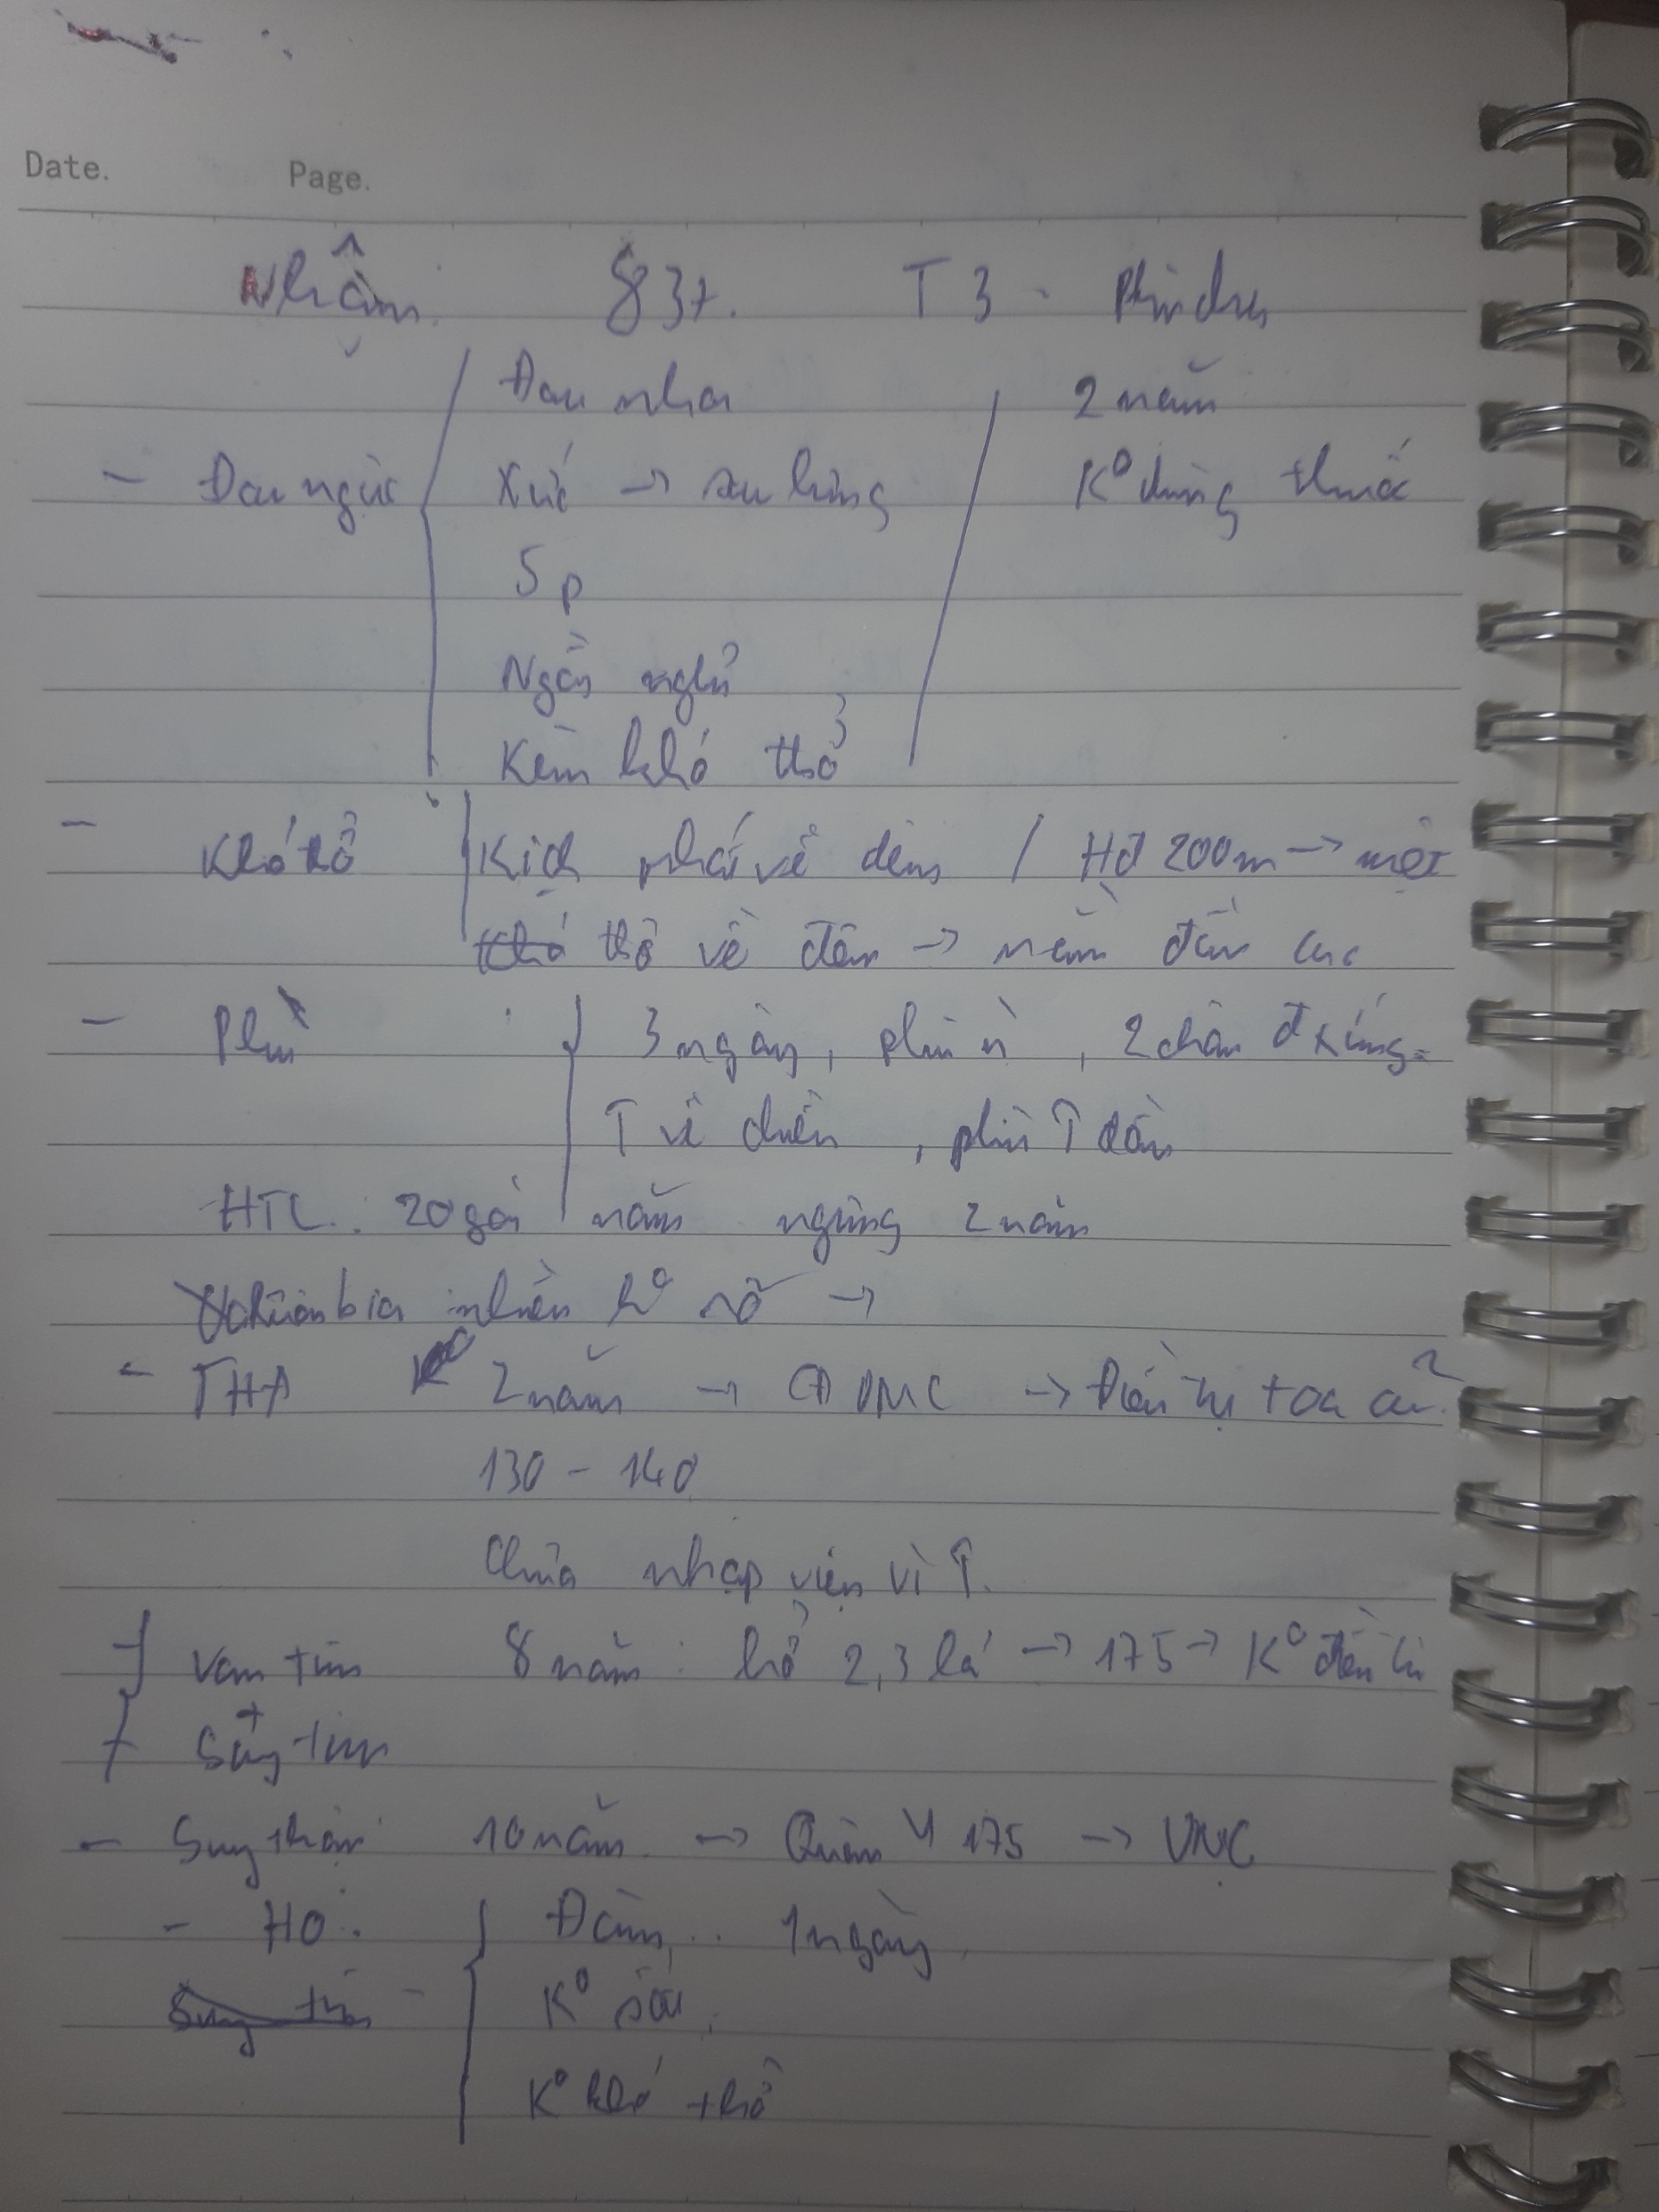 Date. Page.
Nhâm. 83t. T3 -
Đau nhói 2 năm
- Đau ngực Xức → sau lưng K° dùng thuốc
5p
Ngồi nghỉ
Kèm khó thở
- Khó thở Kịch phát về đêm / HĐ 200m → mệt
thở về đêm → nằm đầu cao
- Phù 3 ngày, phù , 2 chân đ xứng
↑ về chiều, phù ↑ dần
HTL: 20 gói năm ngưng 2 năm
bia nhiều k° rõ →
- THA 2 năm → CĐ → Điều trị toa cũ
130 - 140
Chưa nhập viện vì ↑.
+ Van tim 8 năm: hở 2,3 lá → 175 → K° điều trị
+ Suy tim
- Suy thận 10 năm → Quân Y 175 →
- HO: Đàm, 1 ngày
K° sốt,
K° khó thở